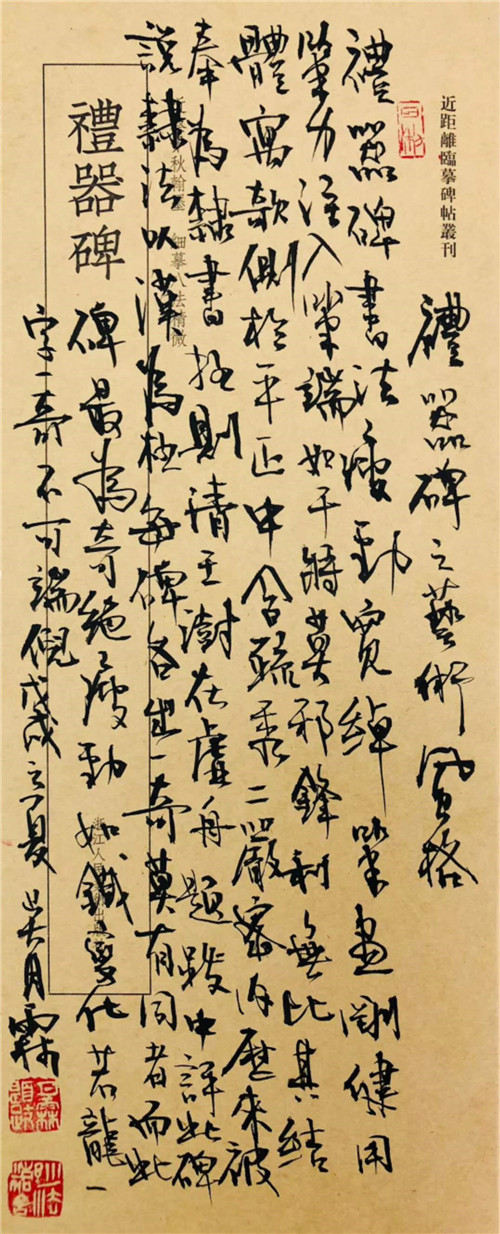 近距離臨摹碑帖叢刊
禮器碑之藝術風格
禮器碑書法瘦勁寬綽筆畫剛健用
筆力注入筆端如干將莫邪鋒利無比其結
體寓欹側於平正中含疏秀于嚴密內歷來被
奉為隸書極則清王澍在虛舟題跋中評此碑
說隸法以漢為極每碑各出一奇莫有同者而此
碑最為奇絕瘦勁如鐵變化若龍一
字一奇不可端倪戊戌之夏吳月霖
禮器碑
秋翰墨 細摹八法精微
浙江人民